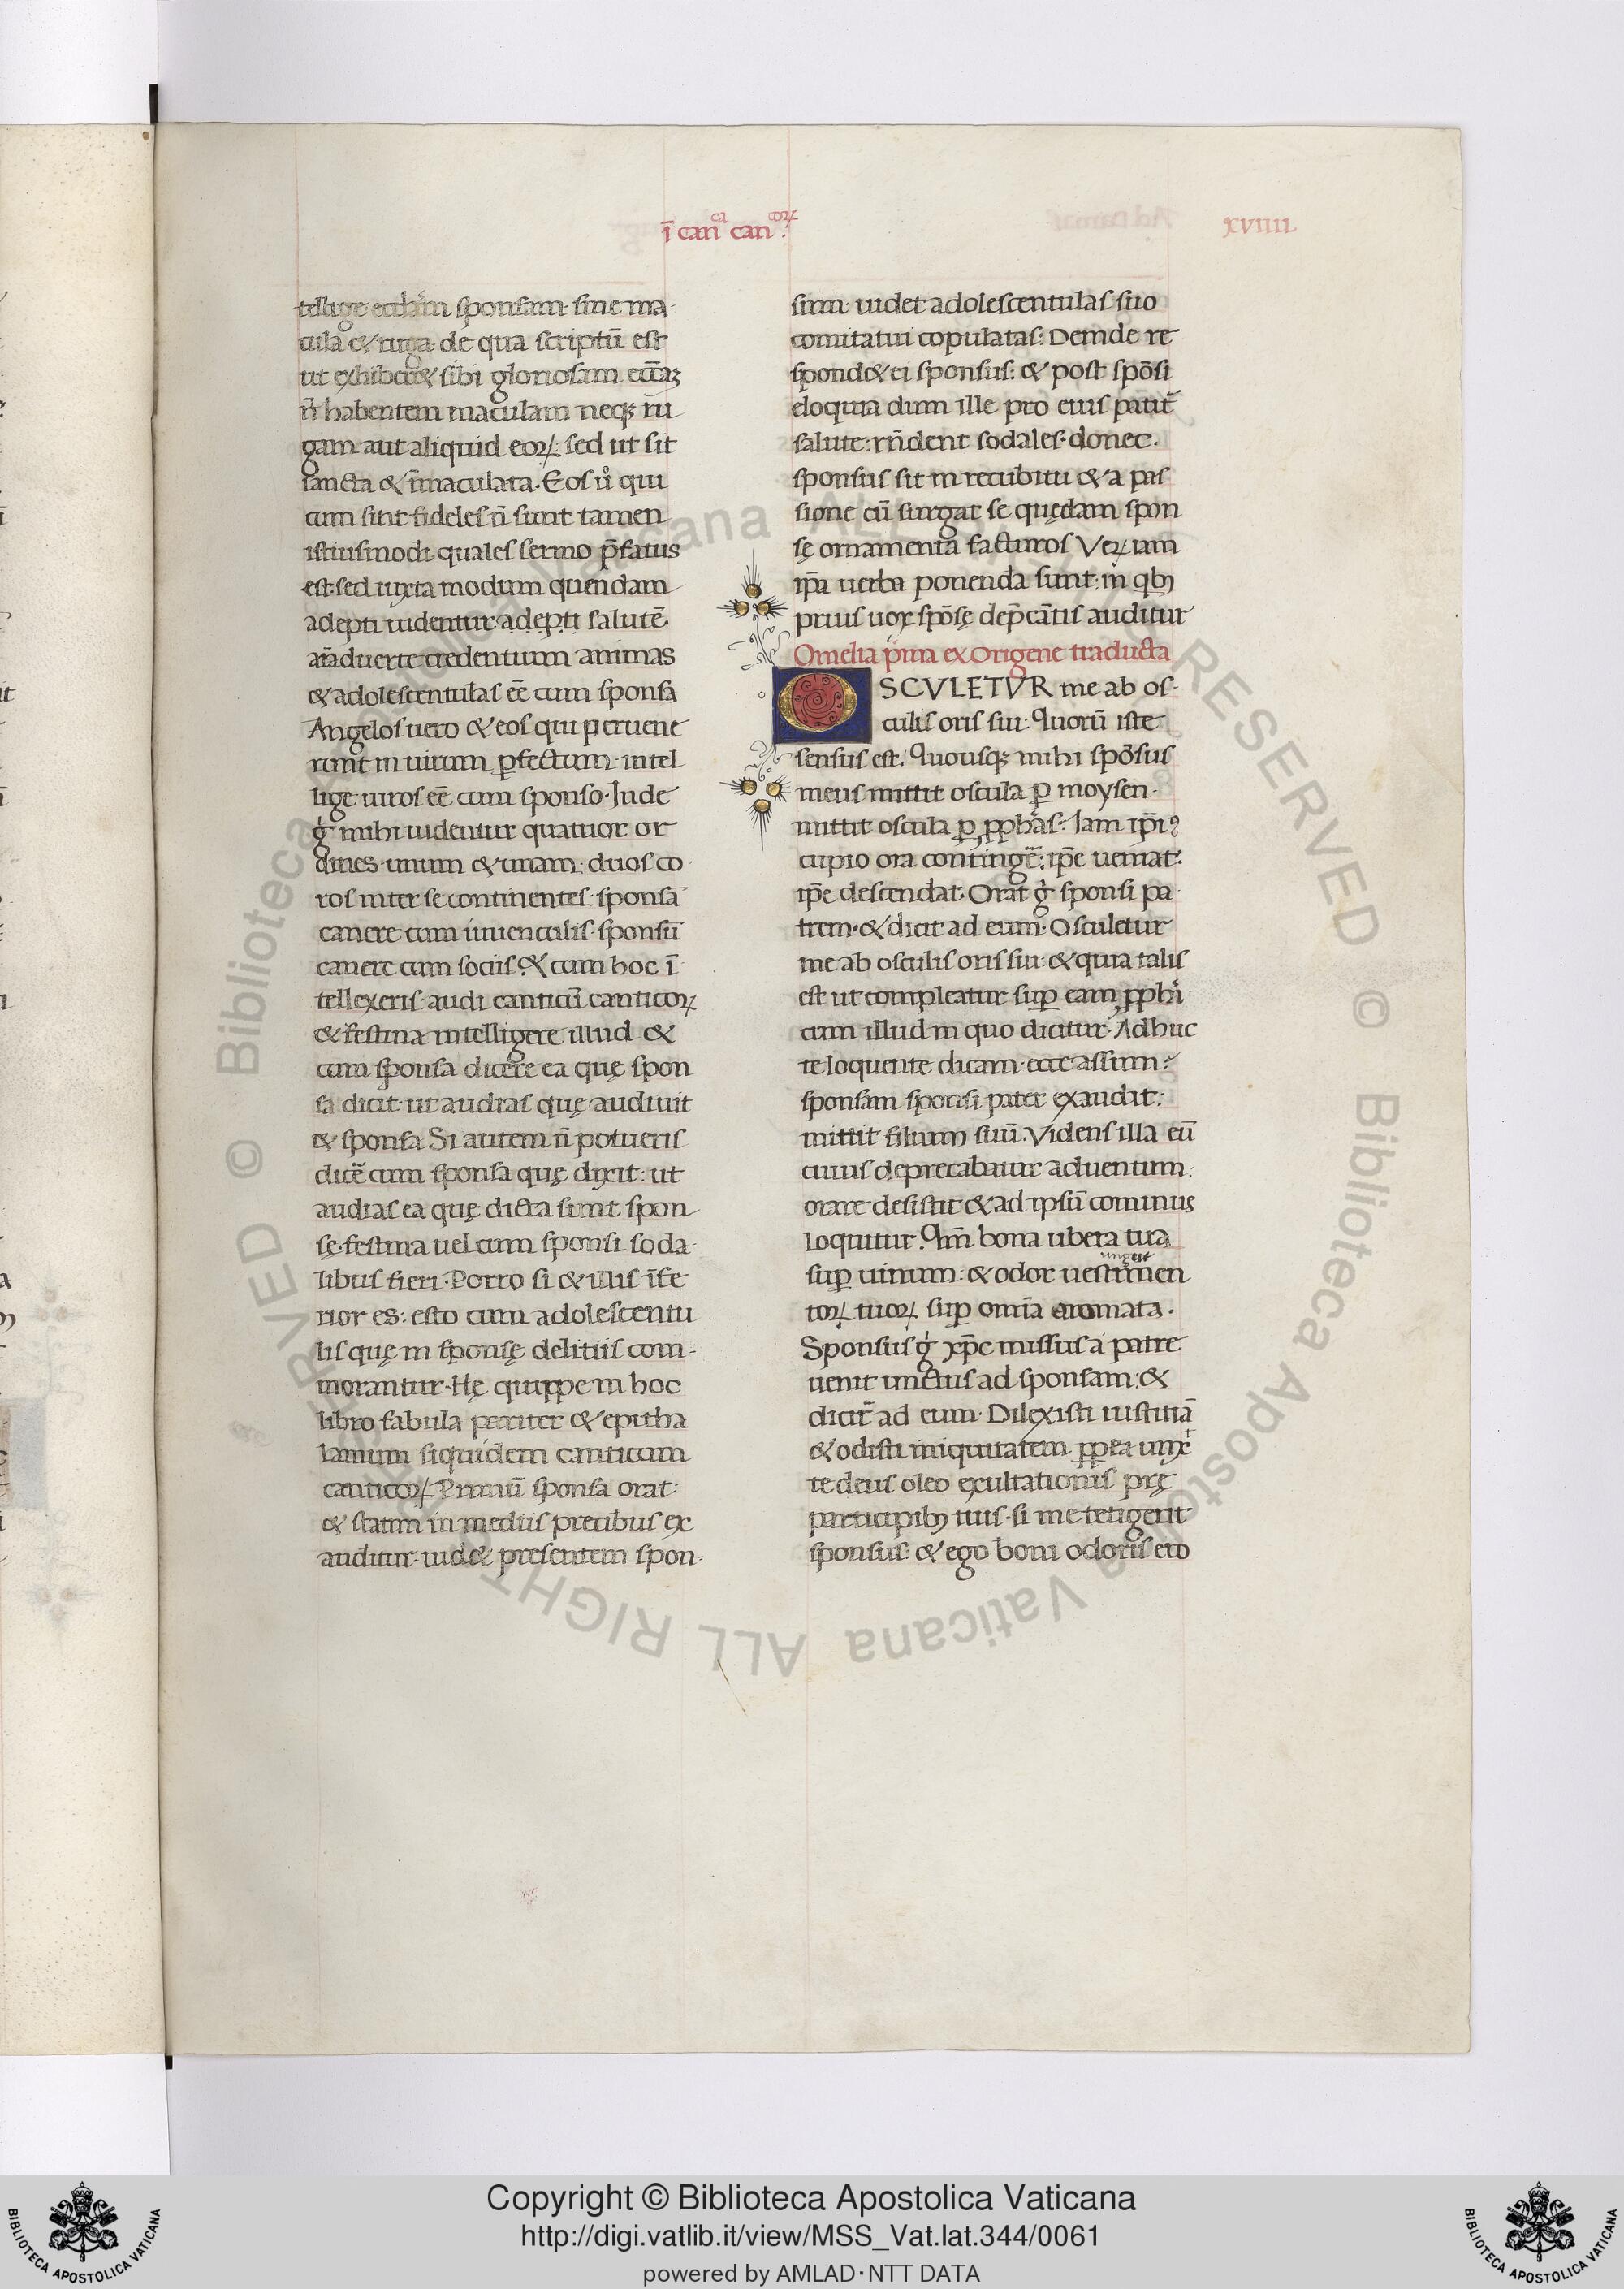 ī can̄ca can̄.corꝝ
xviiii
tellige eccl̄iam sponsam sine ma-
cula & ruga de qua scriptū est
ut exhiber& sibi gloriosam ecc̄aꝫ
n̄ habentem maculam neqꝫ ru
gam aut aliquid eoꝝ: sed ut sit
sancta & īmaculata. Eos u̇o qui
cum sint fideles n̄ sunt tamen
istiusmodi quales sermo p̄fatus
est. sed iuxta modum quendam
adepti uidentur adepti salutē.
aīaduerte credentium animas
& adolescentulas eē cum sponsa
Angelos uero & eos qui peruene
runt in uirum ꝑfectum: intel
lige uiros eē cum sponso. Inde
g̊ mihi uidentur quatuor or
dines. unum & unam: duos co
ros inter se continentes: sponsā
canere cum iuuenculis. sponsū
canere cum sociis. & cum hoc ī
tellexeris: audi canticū canticoꝝ
& festina intelligere illud &
cum sponsa dicere ea quę spon
sa dicit. ut audias quę audiuit
& sponsa Si autem n̄ potueris
dicē cum sponsa quę dixit: ut
audias ea quę dicta sunt spon
sę. festina uel cum sponsi soda
libus fieri. Porro si & illis īfe
rior es: esto cum adolescentu
lis quę in sponsę delitiis com-
morantur. Hę quippe in hoc
libro fabula pariter & epitha
lamium siquidem canticum
canticoꝝ. Primū sponsa orat:
& statim in mediis precibus ex
auditur. uid& presentem spon-
sum. uidet adolescentulas suo
comitatui copulatas: Deinde re
spond& ei sponsus: & post spōsi
eloquia dum ille pro eius patit̄
salute: rn̄dent sodales. donec.
sponsus sit in recubitu & a pas
sione cū surgat se quędam spon
sę ornamenta facturos Veꝝ iam
ip̄a uerba ponenda sunt: in qbꝫ
prius uox spōsę dep̄cātis auditur
Omelia p̄ima ex Origene traducta
OSCVLETVR me ab os-
culis oris sui: Quorū iste
sensus est. Quousqꝫ mihi spōsus
meus mittit oscula ꝑ moysen.
mittit oscula ꝑ ꝓph̄as: Iam ip̄iꝰ
cupio ora contingē: ip̄e ueniat:
ip̄e descendat. Orat g̊ sponsi pa
trem. & dicit ad eum. Osculetur
me ab osculis oris sui: & quia talis
est ut compleatur suꝑ eam ꝓphī
cum illud in quo dicitur. Adhuc
te loquente dicam. ecce assum:
sponsam sponsi pater exaudit:
mittit filium suū. Videns illa eū
cuius deprecabatur aduentum:
orare desistit & ad ipsū cominus
loquitur. Qm̄ bona ubera tua
suꝑ uinum: & odor uestimen
ungūt
toꝝ tuoꝝ suꝑ omīa aromata.
Sponsus g̊ xp̄c missus a patre
uenit unctus ad sponsam: &
dicit̄ ad eum. Dilexisti iustitiā
& odisti iniquitatem ꝓpt̄ea unxit
te deus oleo exultationis prę
participibꝫ tuis. si me tetigerit
sponsus: & ego boni odoris ero
© Biblioteca Apostolica Vaticana ALL RIGHTS RESERVED © Biblioteca Apostolica Vaticana ALL RIGHTS RESERVED
Copyright © Biblioteca Apostolica Vaticana
http://digi.vatlib.it/view/MSS_Vat.lat.344/0061
powered by AMLAD·NTT DATA
BIBLIOTECA APOSTOLICA VATICANA
BIBLIOTECA APOSTOLICA VATICANA